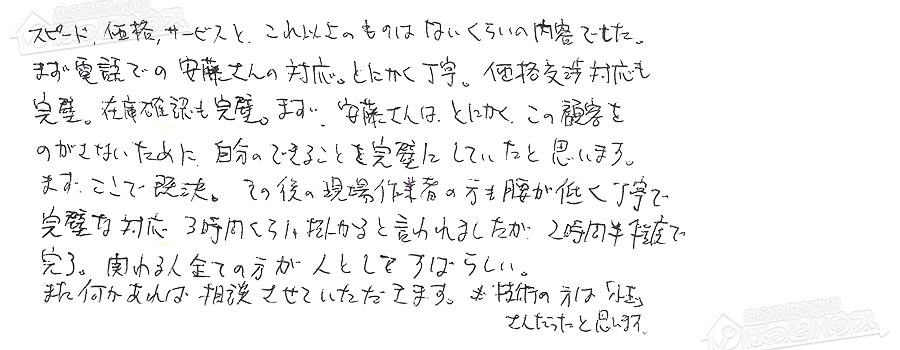 スピード、価格、サービスと、これ以上のものはないくらいの内容でした。
まず電話での安藤さんの対応。とにかく丁寧。価格交渉対応も
完璧。在庫確認も完璧。まず、安藤さんは、とにかく、この顧客を
のがさないために、自分のできることを完璧にしていたと思います。
まず、ここで即決。その後の現場作業者の方も腰が低く丁寧で
完璧な対応、3時間くらい掛かると言われましたが、2時間半程度で
完了。関わる人全ての方が人としてすばらしい。
また何かあれば相談させていただきます。※技術の方は「小玉」
さんだったと思います。